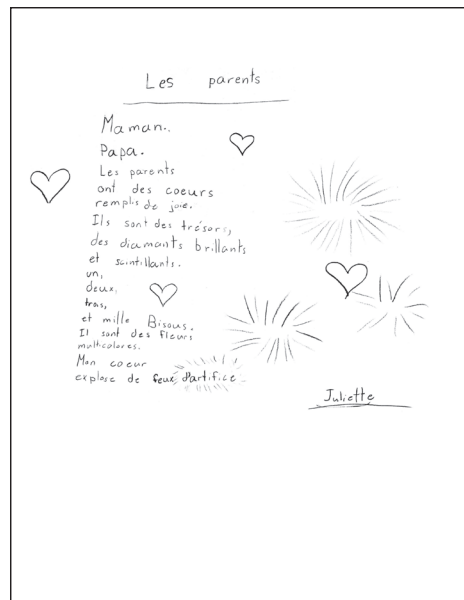 Les parents
Maman.
Papa.
Les parents
ont des coeurs
remplis de joie.
Ils sont des trésors,
des diamants brillants
et scintillants.
un,
deux,
trois,
et mille Bisous.
Il sont des fleurs
multicolores.
Mon coeur
explose de feux d'artifice
Juliette